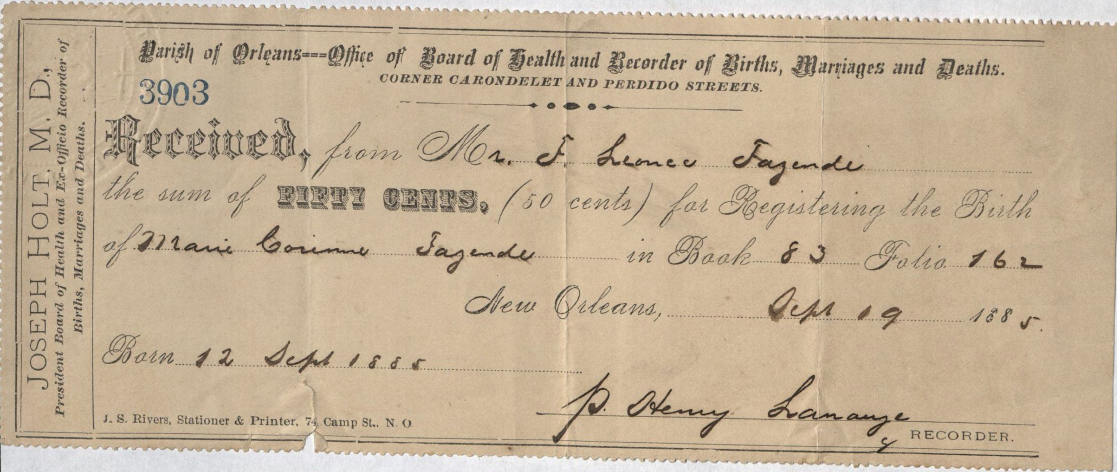 JOSEPH HOLT, M. D.,
President Board of Health and Ex-Officio Recorder of
Births, Marriages and Deaths.
Parish of Orleans---Office of Board of Health and Recorder of Births, Marriages and Deaths.
CORNER CARONDELET AND PERDIDO STREETS.
3903
Received, from Mr. F. Leonce Fazende
the sum of FIFTY CENTS, (50 cents) for Registering the Birth
of Marie Corinne Fazende in Book 83 Folio 162
New Orleans, Sept 19 1885.
Born 12 Sept 1885
P. Henry Lanauze
J. S. Rivers, Stationer & Printer, 74 Camp St., N. O.
RECORDER.